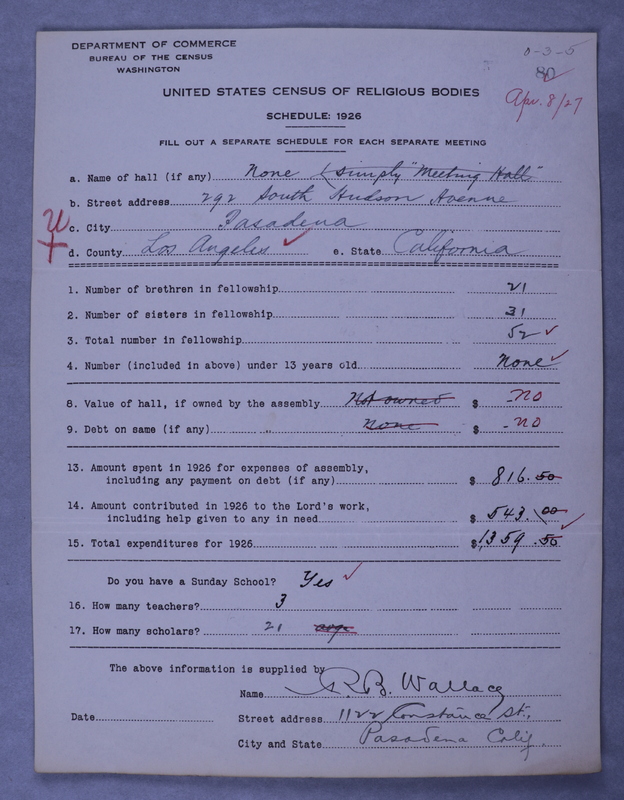 DEPARTMENT OF COMMERCE
BUREAU OF THE CENSUS
WASHINGTON
0-3-5
80
Apr. 8/27
UNITED STATES CENSUS OF RELIGIOUS BODIES
SCHEDULE: 1926
FILL OUT A SEPARATE SCHEDULE FOR EACH SEPARATE MEETING
a. Name of hall (if any) None (simply "Meeting Hall"
b. Street address 292 South Hudson Avenue
c. City Pasadena
d. County Los Angeles e. State California
1. Number of brethren in fellowship 21
2. Number of sisters in fellowship 31
3. Total number in fellowship 52
4. Number (included in above) under 13 years old None
8. Value of hall, if owned by the assembly Not owned $ -no
9. Debt on same (if any) none $ -no
13. Amount spent in 1926 for expenses of assembly,
including any payment on debt (if any) $ 816.50
14. Amount contributed in 1926 to the Lord's work,
including help given to any in need $ 543.00
15. Total expenditures for 1926 $1,359.50
Do you have a Sunday School? Yes
16. How many teachers? 3
17. How many scholars? 21
The above information is supplied by
Name R.B. Wallace
Date Street address 1122 Constance St.,
City and State Pasadena Calif.